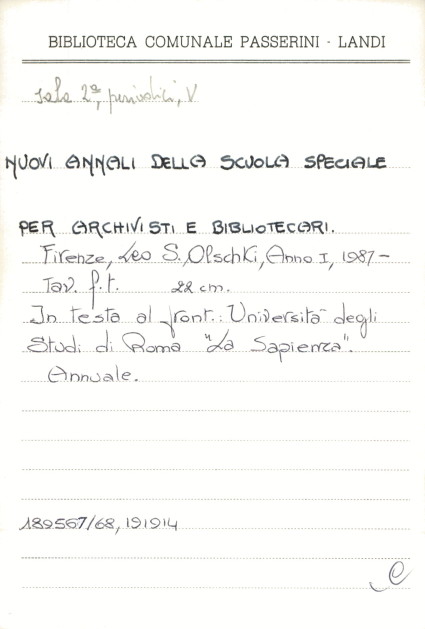 BIBLIOTECA COMUNALE PASSERINI - LANDI
sala 2ª, periodici, V
NUOVI ANNALI DELLA SCUOLA SPECIALE
PER ARCHIVISTI E BIBLIOTECARI.
Firenze, Leo S. Olschki, Anno I, 1987-
Tav. f.t. 22 cm.
In testa al front.: Università degli
Studi di Roma "La Sapienza".
Annuale.
189567/68, 191914
C